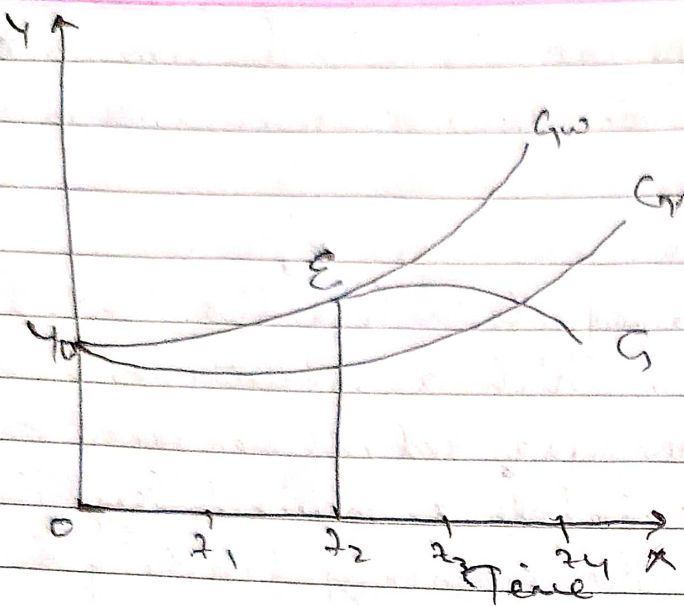 Y
Gw
Gn
E
Y0
G
0
t1
t2
t3
t4
X
Time